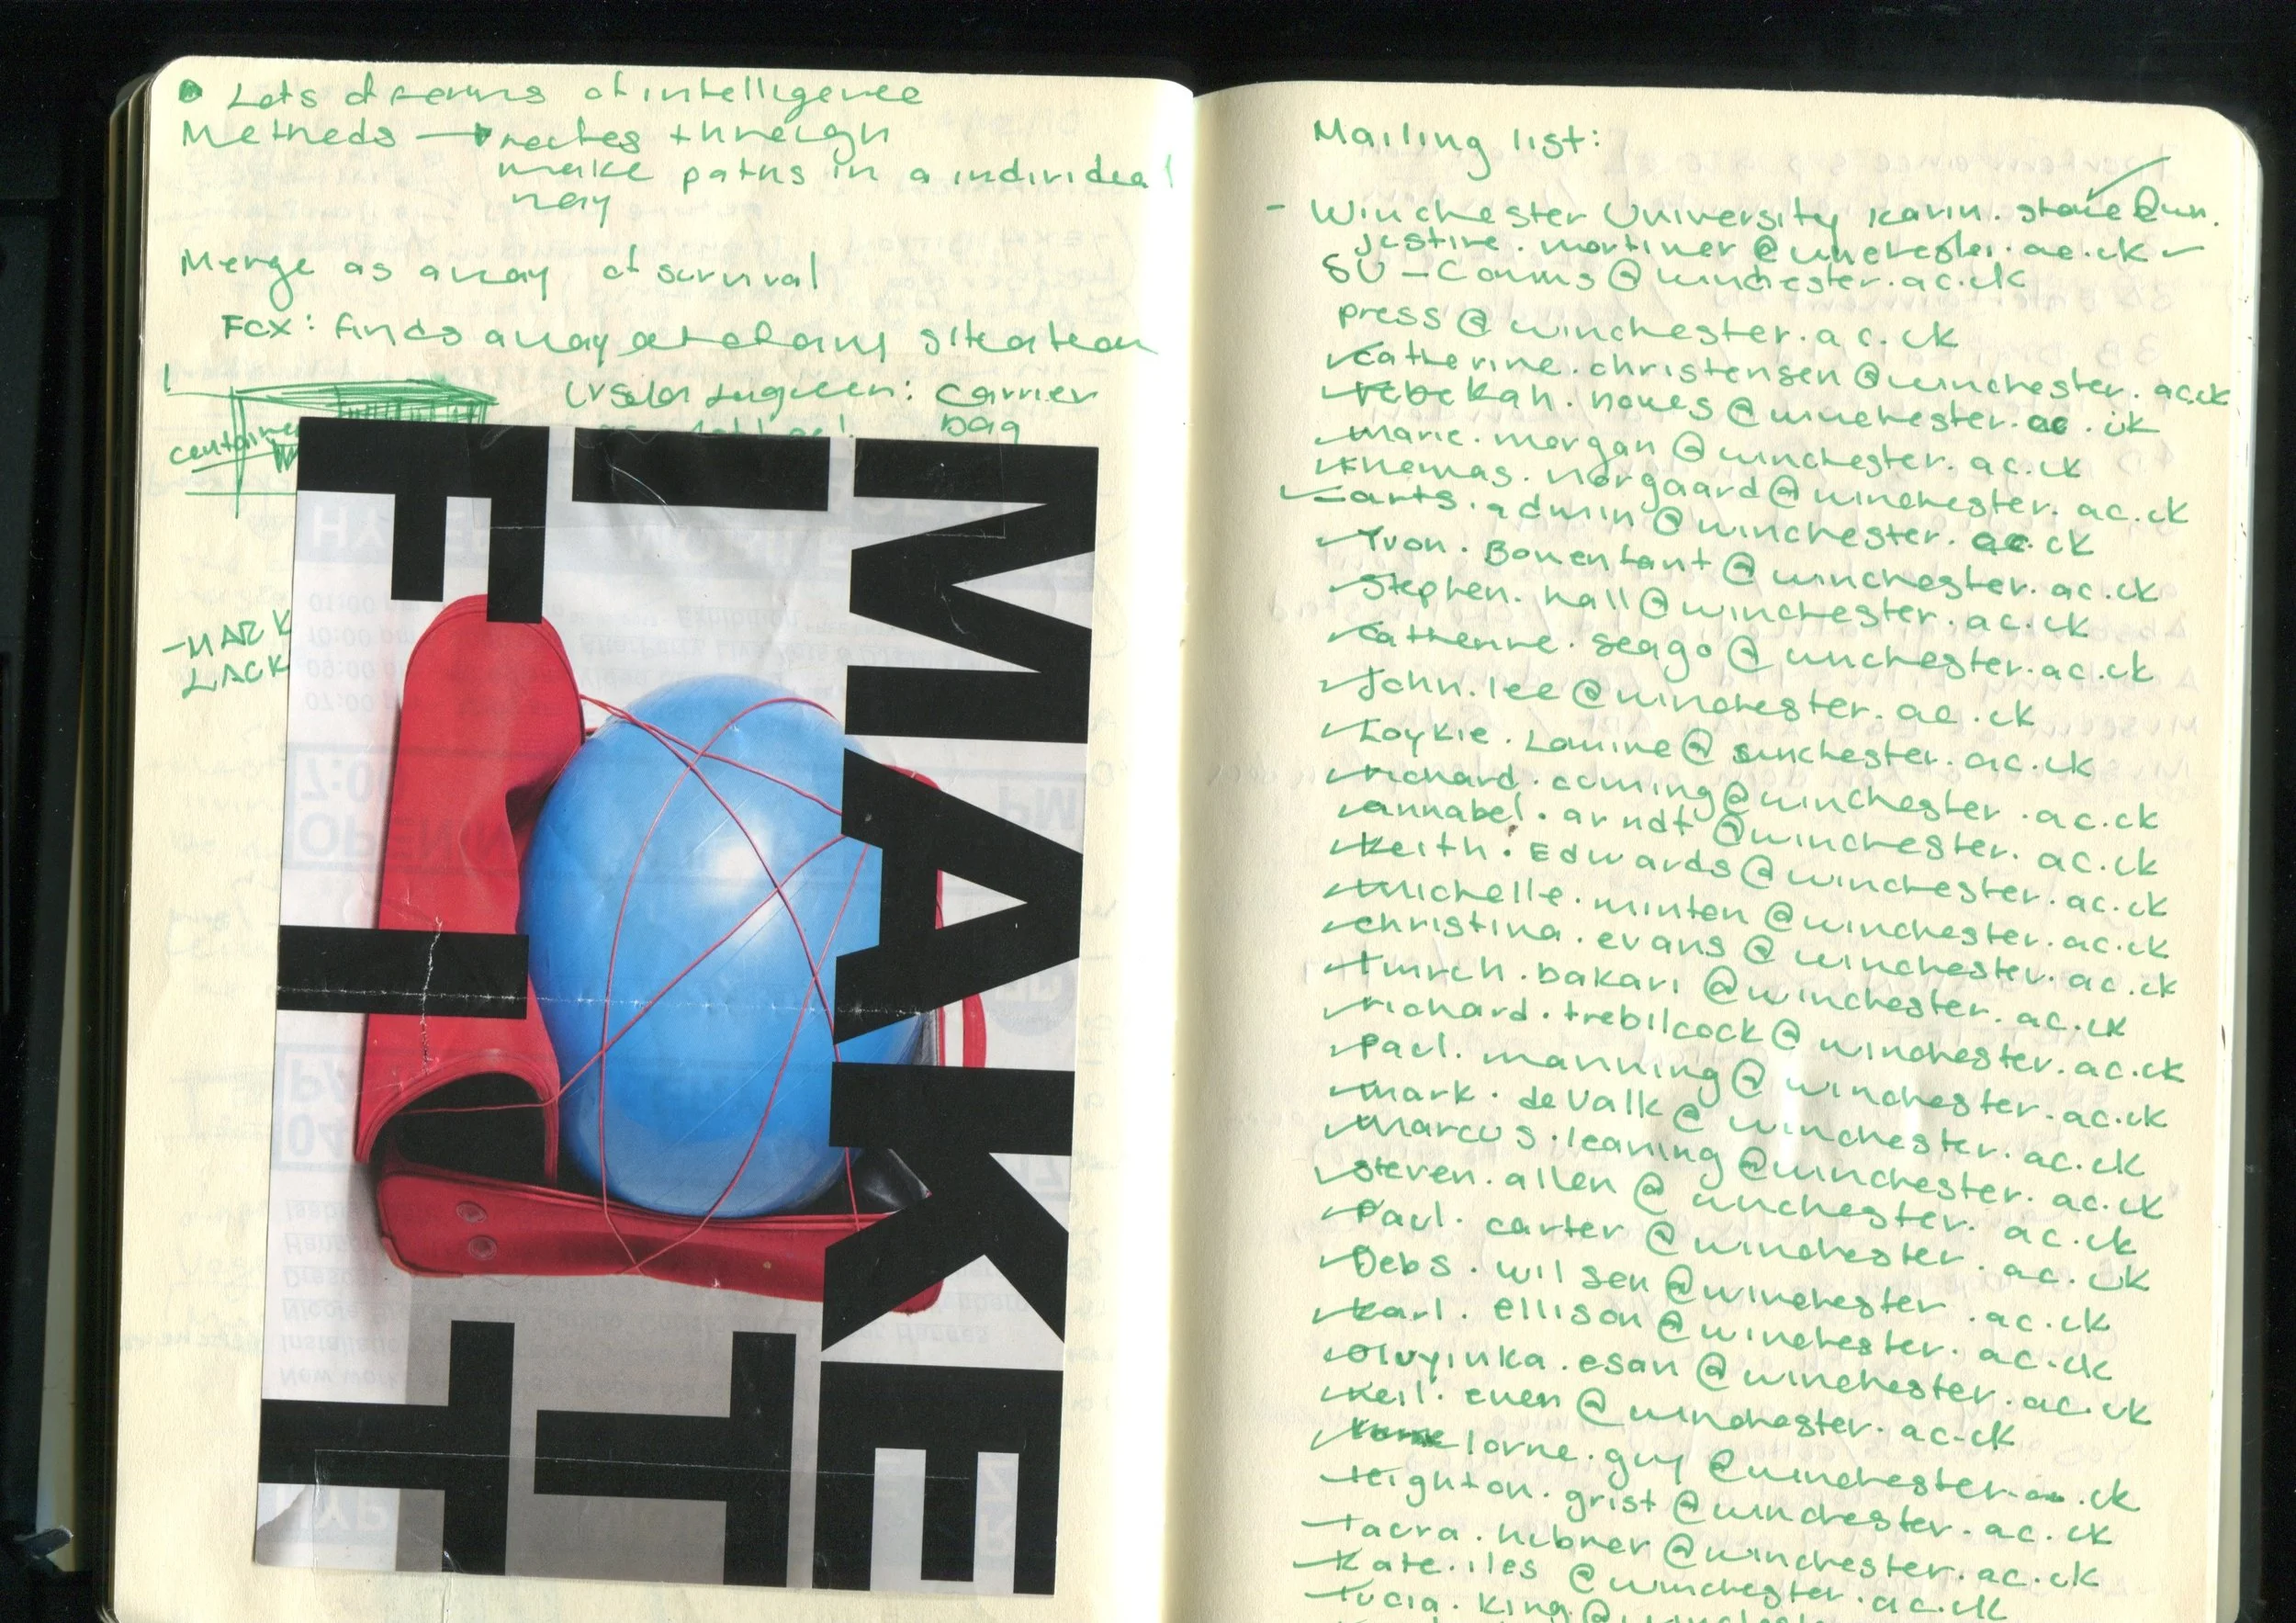 Lots of forms of intelligence
Methods → routes through
make paths in a individual
way
Merge as a way of survival
Fox: finds a way out of any situation
Ursula Leguin: carrier
bag
container
MAKE
IT
FIT
Mailing list:
- Winchester University karin.
justine.mortimer@winchester.ac.uk
SU-Comms@winchester.ac.uk
press@winchester.ac.uk
catherine.christensen@winchester.ac.uk
rebekah. @winchester.ac.uk
marie.morgan@winchester.ac.uk
thomas.norgaard@winchester.ac.uk
arts.admin@winchester.ac.uk
Yvon.Bonenfant@winchester.ac.uk
Stephen.hall@winchester.ac.uk
Catherine.seago@winchester.ac.uk
John.lee@winchester.ac.uk
Loykie.Lomine@winchester.ac.uk
richard.cuming@winchester.ac.uk
annabel.arndt@winchester.ac.uk
Keith.Edwards@winchester.ac.uk
Michelle.minton@winchester.ac.uk
christina.evans@winchester.ac.uk
bakari@winchester.ac.uk
richard.trebilcock@winchester.ac.uk
Paul.manning@winchester.ac.uk
mark.deValk@winchester.ac.uk
Marcus.leaning@winchester.ac.uk
steven.allen@winchester.ac.uk
Paul.carter@winchester.ac.uk
Debs.wilson@winchester.ac.uk
Karl.ellison@winchester.ac.uk
oluyinka.esan@winchester.ac.uk
@winchester.ac.uk
lorne.guy@winchester.ac.uk
leighton.grist@winchester.ac.uk
laura.hubner@winchester.ac.uk
Kate.iles@winchester.ac.uk
lucia.king@winchester.ac.uk